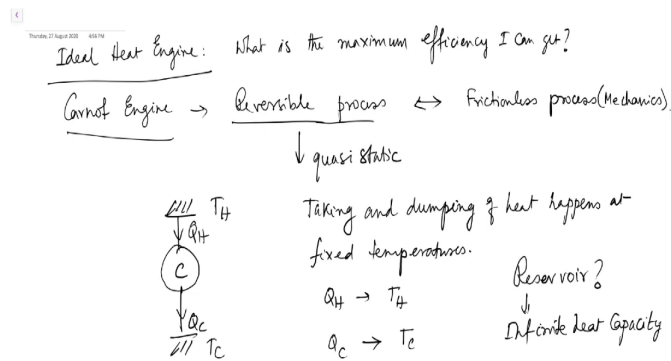 Thursday, 27 August 2020 4:06 PM
Ideal Heat Engine: What is the maximum efficiency I can get?
Carnot Engine → Reversible process ↔ Frictionless process (Mechanics).
↓ quasi static
T_H
Q_H
C
Q_C
T_C
Taking and dumping of heat happens at
fixed temperatures.
Q_H → T_H
Q_C → T_C
Reservoir?
↓
Infinite heat Capacity